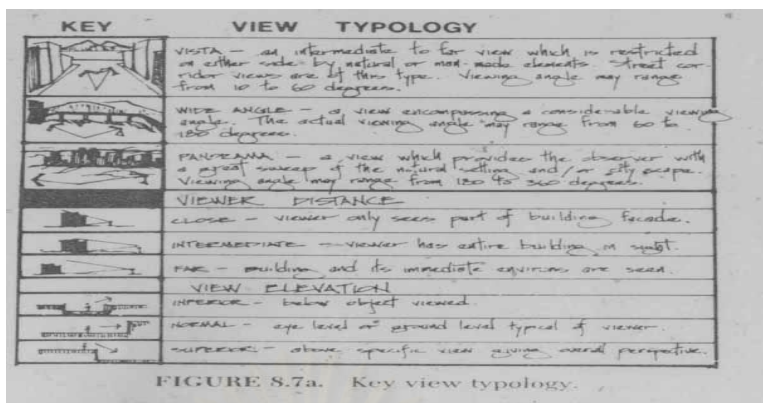 KEY VIEW TYPOLOGY
VISTA – an intermediate to far view which is restricted
on either side by natural or man-made elements. Street cor-
ridor views are of this type. Viewing angle may range
from 10 to 60 degrees.
WIDE ANGLE – a view encompassing a considerable viewing
angle. The actual viewing angle may range from 60 to
180 degrees.
PANORAMA – a view which provides the observer with
a great sweep of the natural setting and/or city scape.
Viewing angle may range from 180 to 360 degrees.
VIEWER DISTANCE
CLOSE – viewer only sees part of building facade.
INTERMEDIATE – viewer has entire building in sight.
FAR – Building and its immediate environs are seen.
VIEW ELEVATION
INFERIOR – below object viewed.
NORMAL – eye level or ground level typical of viewer.
SUPERIOR – above specific view giving overall perspective.
FIGURE 8.7a. Key view typology.